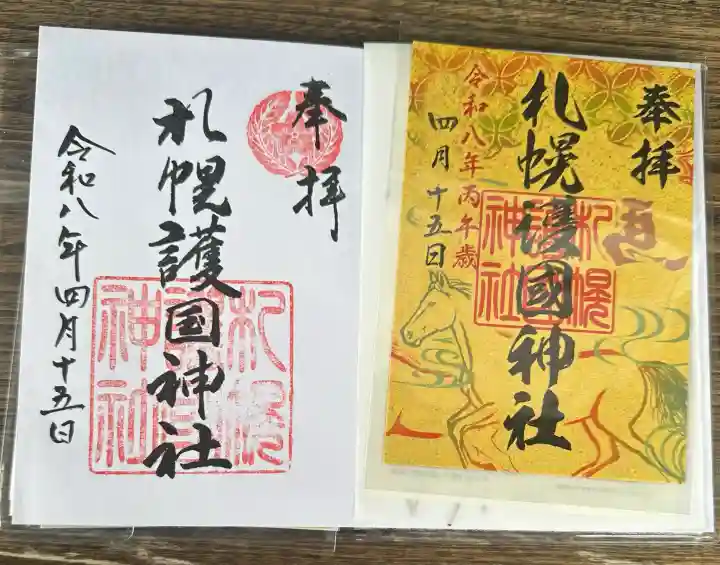 奉拝
札幌護国神社
札幌
護国
神社
令和八年四月十五日
奉拝
札幌護國神社
札幌
護国
神社
令和八年丙午歳
四月十五日